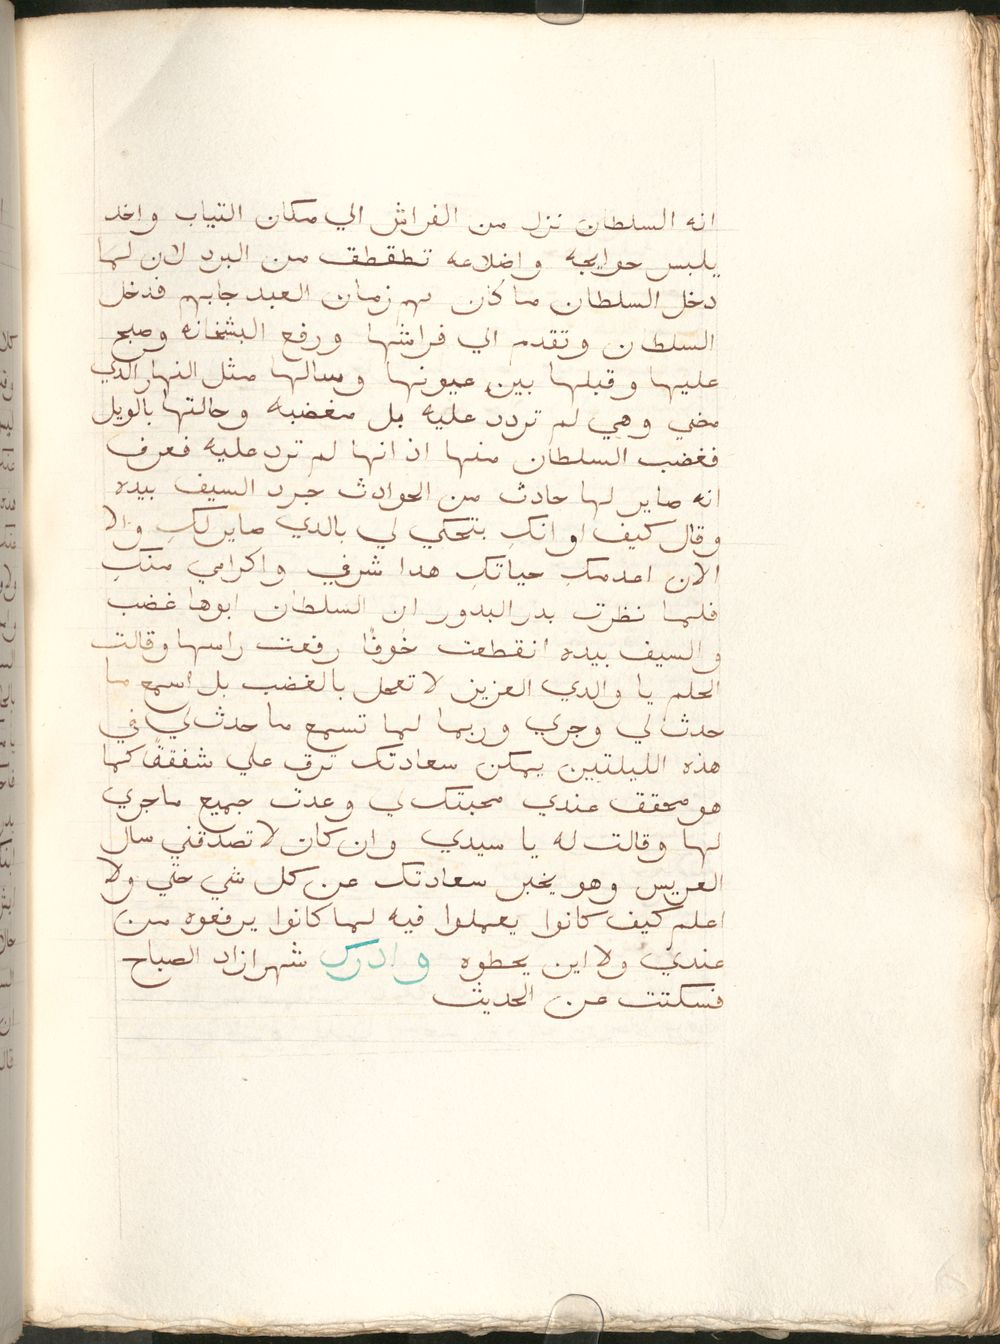 انه السلطان نزل من الفراش الي مكان التياب واخد
يلبس حوايجه واضلاعه تطقطق من البرد لان لما
دخل السلطان ما كان لهم زمان العبد جابهم فدخل
السلطان وتقدم الي فراشها ورفع البشخانه وصبح
عليها وقبلها بين عيونها وسالها متل النهار الدي
مضي وهي لم تردد عليه بل مغضبه وحالتها بالويل
فغضب السلطان منها اذ انها لم ترد عليه فعرف
انه صاير لها حادث من الحوادث جرد السيف بيده
وقال كيف او انكِ بتحكي لي بالدي صاير لكِ والا
الان اعدمكِ حياتكِ هدا شرفي واكرامي منكِ
فلما نظرت بدر البدور ان السلطان ابوها غضب
والسيف بيده انقطعت خوفًا رفعت راسها وقالت
الحلم يا والدي العزيز لا تعمل بالغضب بل اسمع ما
حدث لي وجري وربما لما تسمع ما حدث لي في
هذه الليلتين يمكن سعادتك ترق علي شفقةً كما
هو محقق عندي محبتك لي وعدت جميع ما جري
لها وقالت له يا سيدي وان كان لا تصدقني سال
العريس وهو يخبر سعادتك عن كل شي حتي ولا
اعلم كيف كانوا يعملوا فيه لما كانوا يرفعوه من
عندي ولا اين يحطوه وادرك شهرازاد الصباح
فسكتت عن الحديث